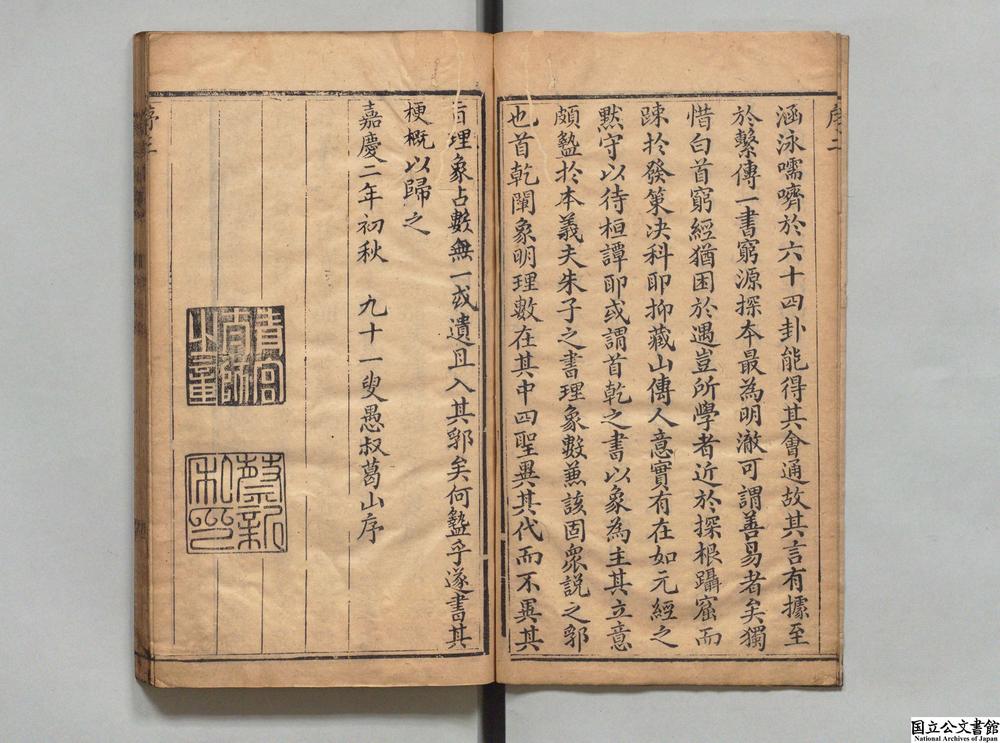 序二
涵泳嚅嚌於六十四卦能得其會通故其言有據至
於繫傳一書窮源探本最為明澈可謂善易者矣獨
惜白首窮經猶困於遇豈所學者近於探根躡窟而
踈於發策决科耶抑藏山傳人意實有在如元經之
默守以待桓譚耶或謂首乾之書以象為主其立意
頗盭於本義夫朱子之書理象數兼該固眾說之郛
也首乾闡象明理數在其中四聖異其代而不異其
旨理象占數無一或遺且入其郛矣何盭乎遂書其
梗概以歸之
嘉慶二年初秋 九十一叟愚叔葛山序
皆宮太師之章
蔡新私印
序三
国立公文書館
National Archives of Japan